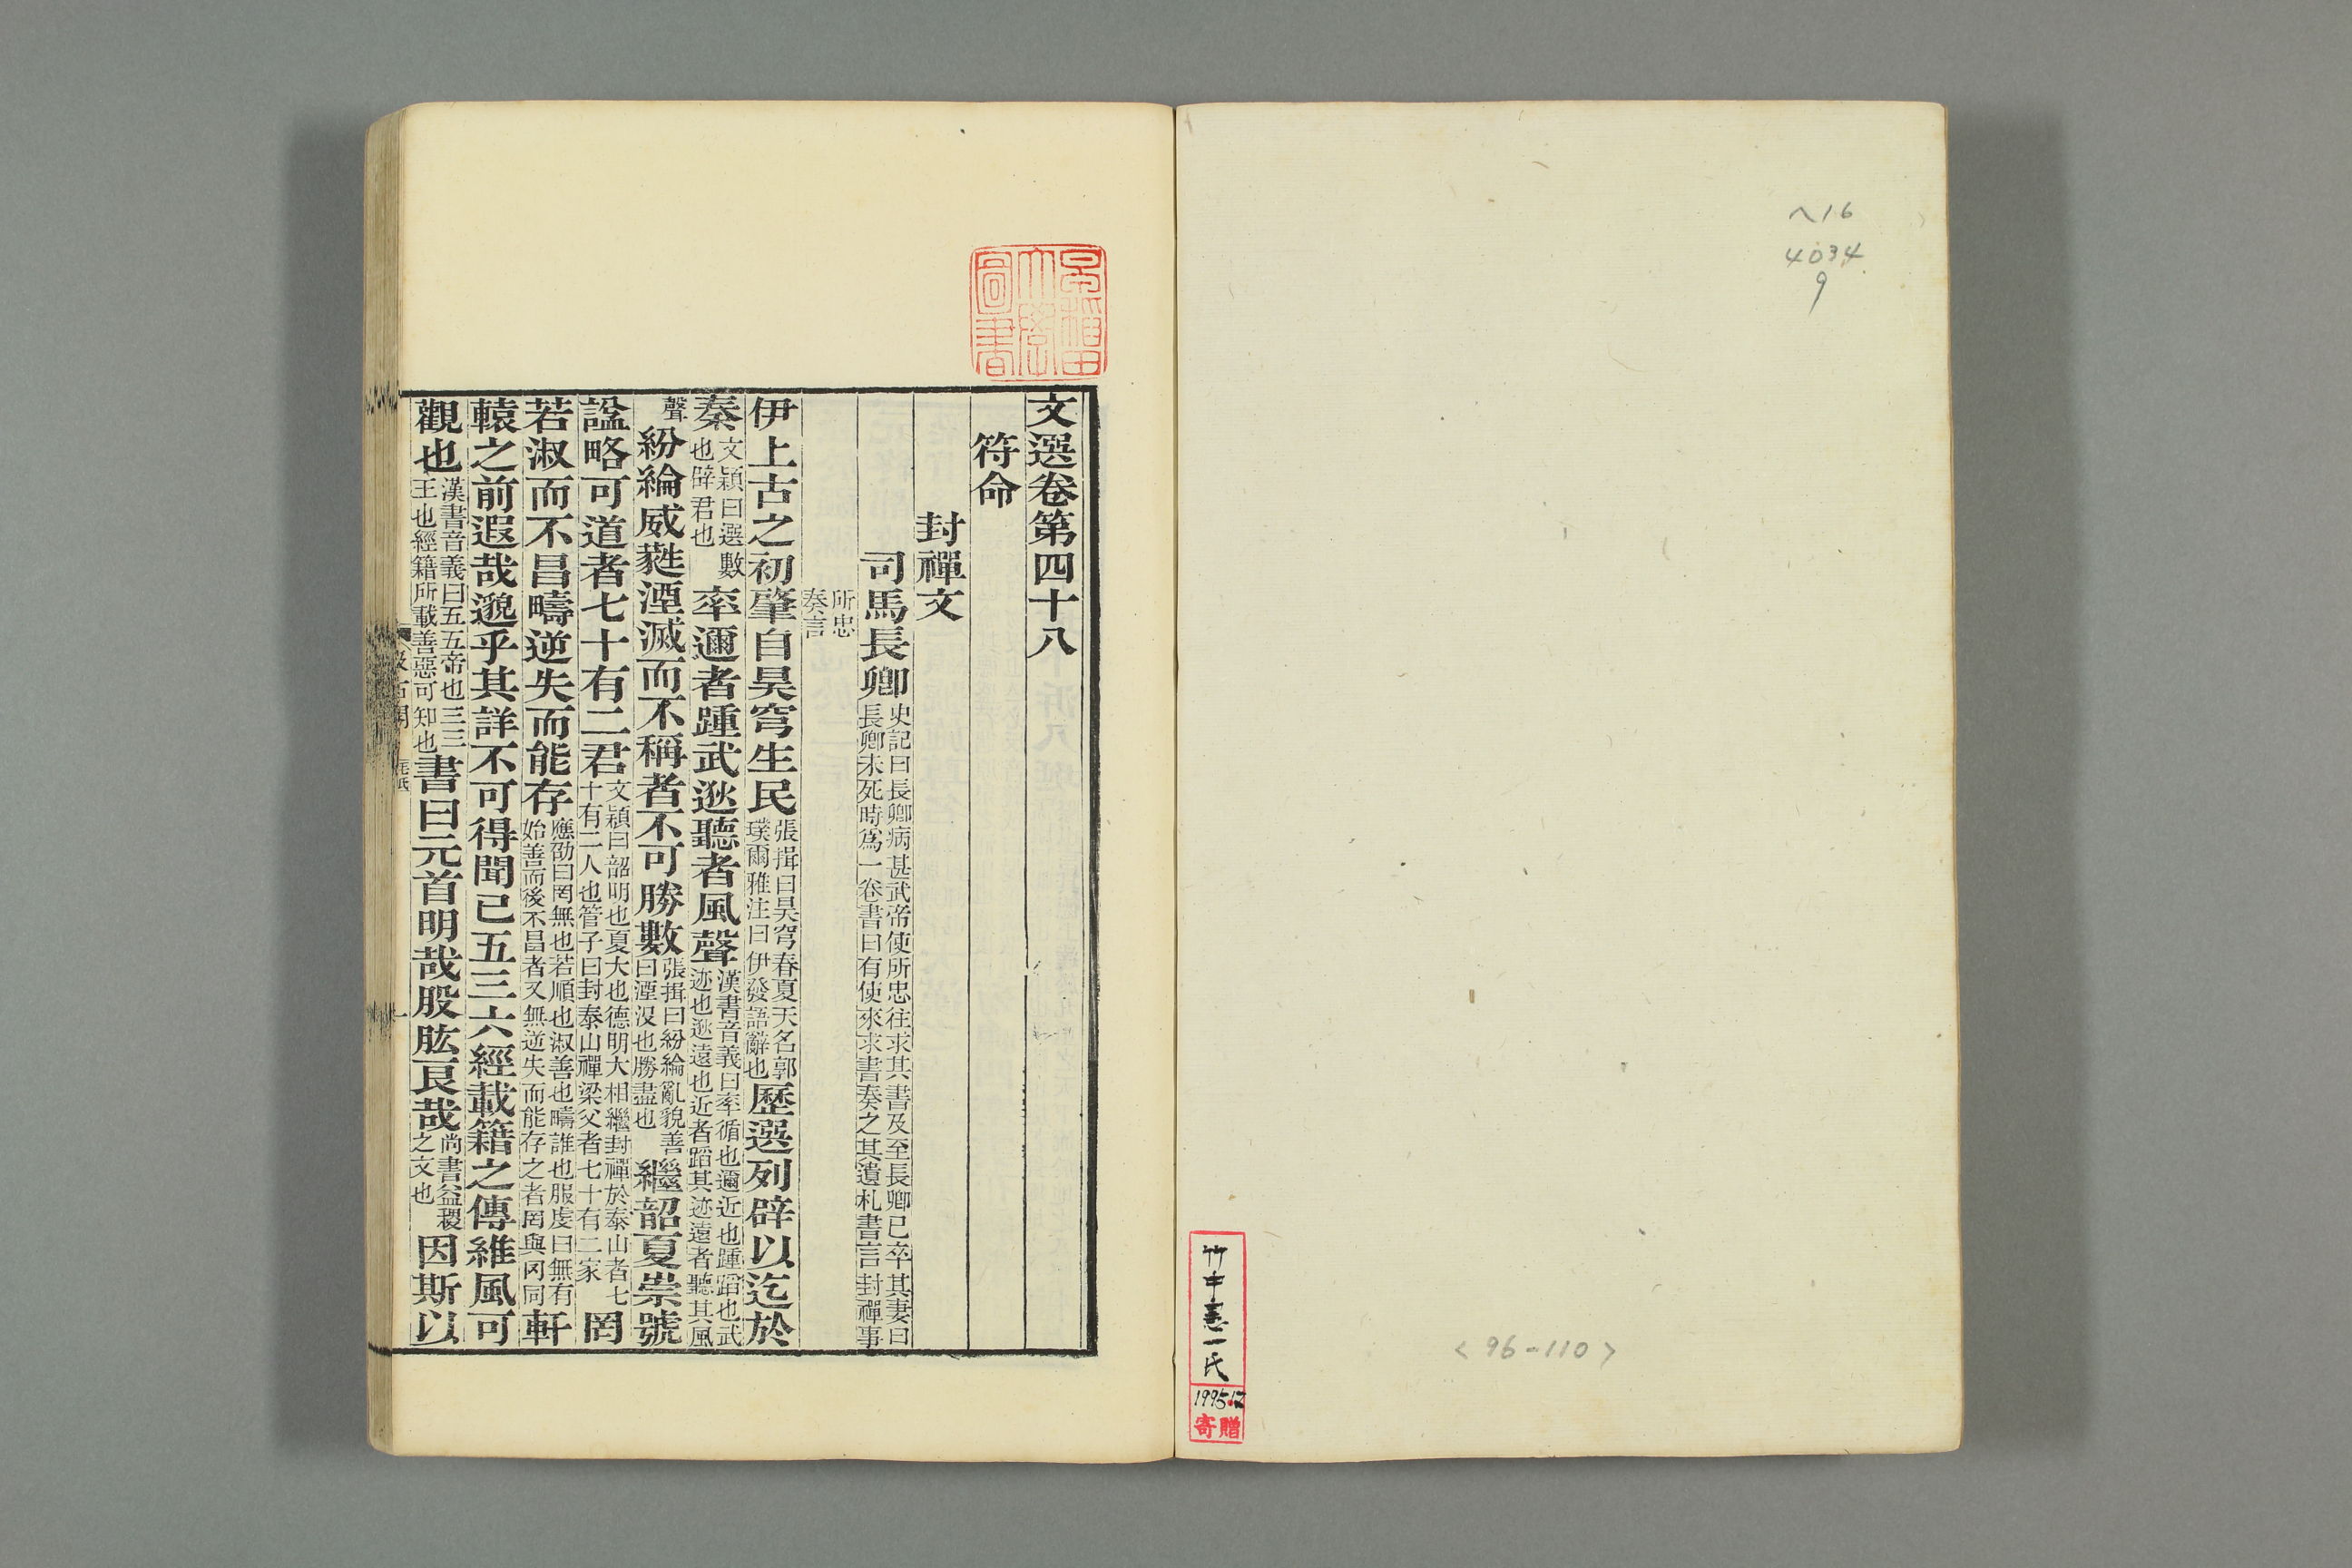 ヘ16
4034
9
<96-110>
竹中憲一氏
1995.12
寄贈
早稲田大學圖書
文選卷第四十八
符命
封禪文
司馬長卿史記曰長卿病甚武帝使所忠往求其書及至長卿已卒其妻曰長卿未死時爲一卷書曰有使來求書奏之其遺札書言封禪事
所忠奏言
伊上古之初肇自昊穹生民張揖曰昊穹春夏天名郭璞爾雅注曰伊發語辭也歷選列辟以迄於
秦文穎曰選數也辟君也率邇者踵武逖聽者風聲漢書音義曰率循也邇近也踵蹈也武迹也逖遠也近者蹈其迹遠者聽其風
聲紛綸威蕤湮滅而不稱者不可勝數張揖曰紛綸亂貌善曰湮沒也勝盡也繼韶夏崇號
諡略可道者七十有二君文穎曰韶明也夏大也德明大相繼封禪於泰山者七十有二人也管子曰封泰山禪梁父者七十有二家罔
若淑而不昌疇逆失而能存應劭曰罔無也若順也淑善也疇誰也服虔曰無有始善而後不昌者又無逆失而能存之者罔與冈同軒
轅之前遐哉邈乎其詳不可得聞已五三六經載籍之傳維風可
觀也漢書音義曰五五帝也三三王也經籍所載善惡可知也書曰元首明哉股肱良哉尚書益稷之文也因斯以